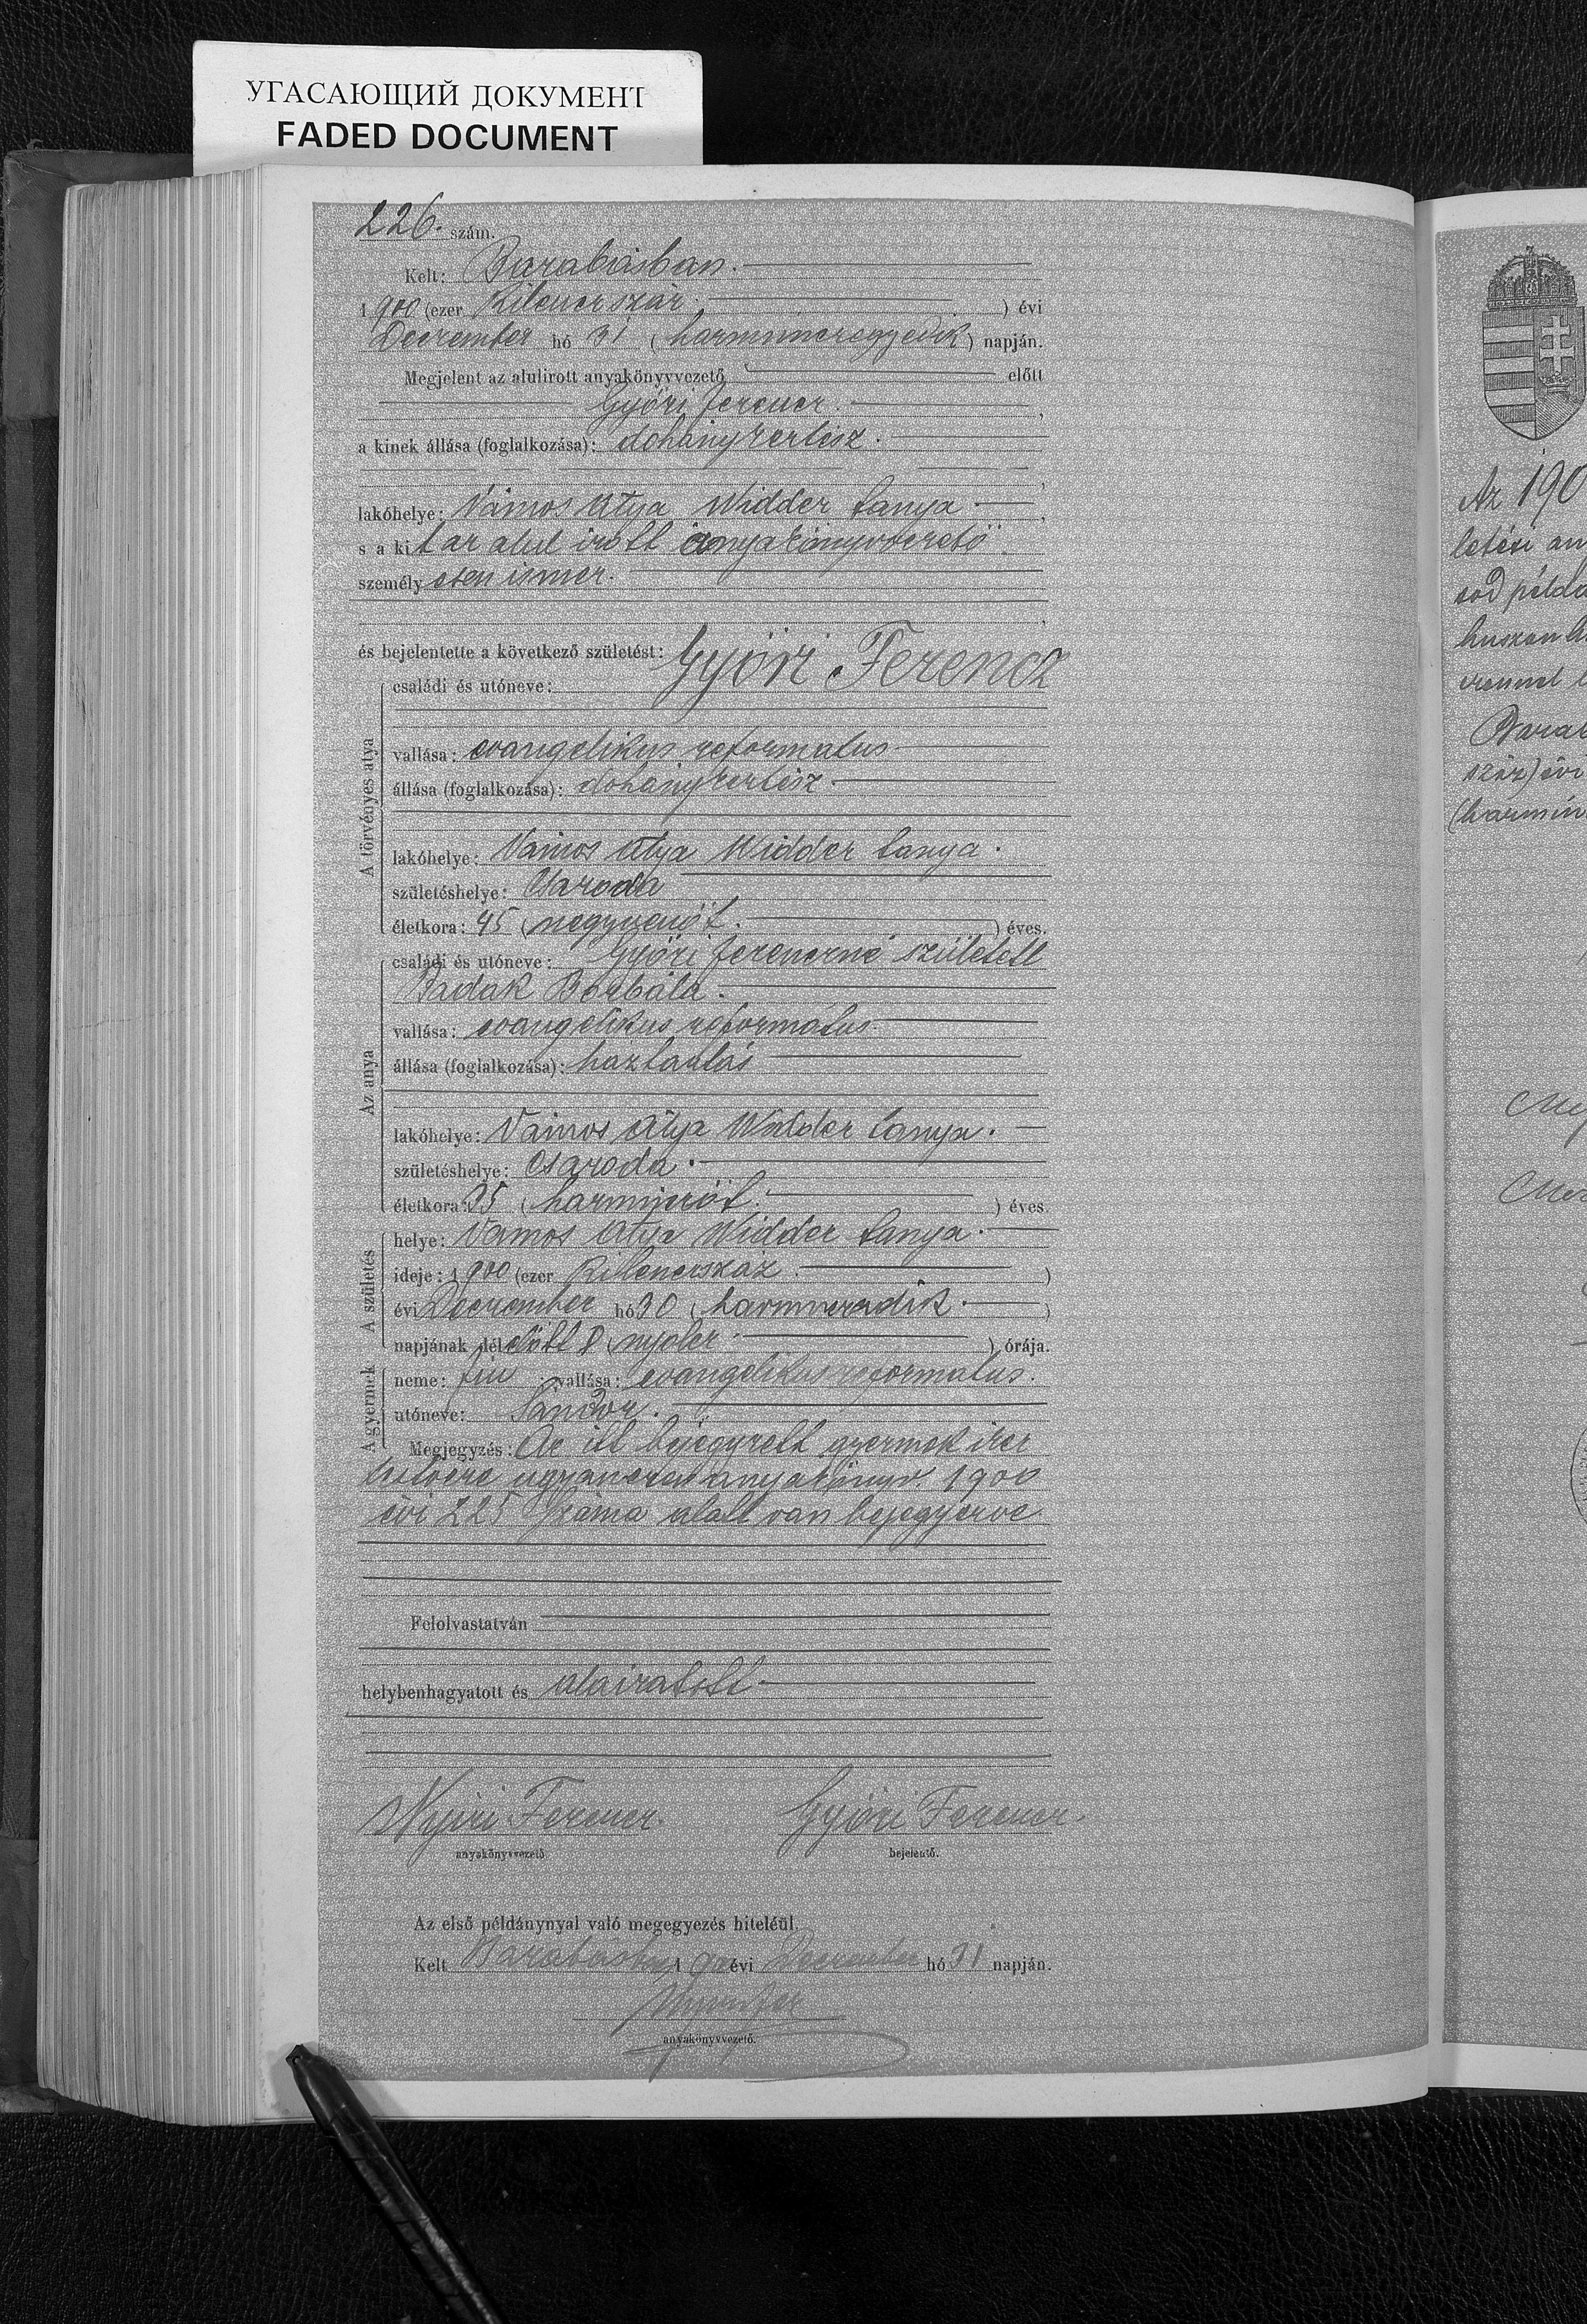 УГАСАЮЩИЙ ДОКУМЕНТ
FADED DOCUMENT
226. szám.
Kelt: Barabásban.
1900 (ezer kilencszáz.) évi
December hó 31 (harminczegyedik) napján.
Megjelent az alulirott anyakönyvvezető előtt
Győri Ferencz.
a kinek állása (foglalkozása): dohánykertész.
lakóhelye: Vámos Atya Widder tanya
s a kit az alul irott anyakönyvvezető
személyesen ismer.
és bejelentette a következő születést:
A törvényes atya
családi és utóneve: Győri Ferencz
vallása: evangelikus reformatus
állása (foglalkozása): dohánykertész
lakóhelye: Vámos Atya Widder tanya.
születéshelye: Csaroda
életkora: 45 (negyvenöt.) éves.
Az anya
családi és utóneve: Győri Ferenczné született
Badak Borbála.
vallása: evangelikus reformatus
állása (foglalkozása): háztartás
lakóhelye: Vámos Atya Widder tanya.
születéshelye: Csaroda.
életkora: 35 (harminczöt.) éves.
A születés
helye: Vámos Atya Widder tanya.
ideje: 1900 (ezer kilenczszáz.)
évi December hó 30 (harminczadik.)
napjának délelőtt 8 (nyolcz.) órája.
A gyermek
neme: fiu; vallása: evangelikus reformatus.
utóneve: Sándor.
Megjegyzés: Az itt bejegyzett gyermek iker
testvére ugyanezen anyakönyv 1900
évi 225 száma alatt van bejegyezve
Felolvastatván
helybenhagyatott és aláiratott
Nyiri Ferencz Győri Ferencz
anyakönyvvezető bejelentő.
Az első példánynyal való megegyezés hiteléül.
Kelt Barabásban 1900 évi December hó 31 napján.
anyakönyvvezető.
Az 190
letési an
sod példá
vennel
Barab
száz) évi
(harmin